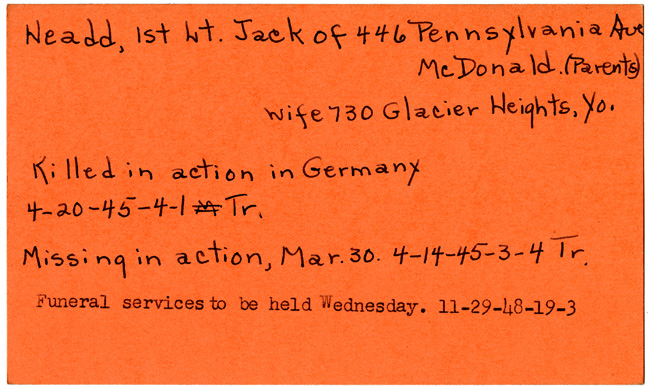 Neadd, 1st Lt. Jack of 446 Pennsylvania Ave
McDonald. (Parents)
wife 730 Glacier Heights, Yo.
Killed in action in Germany
4-20-45-4-1 Tr.
Missing in action, Mar. 30. 4-14-45-3-4 Tr.
Funeral services to be held Wednesday. 11-29-48-19-3